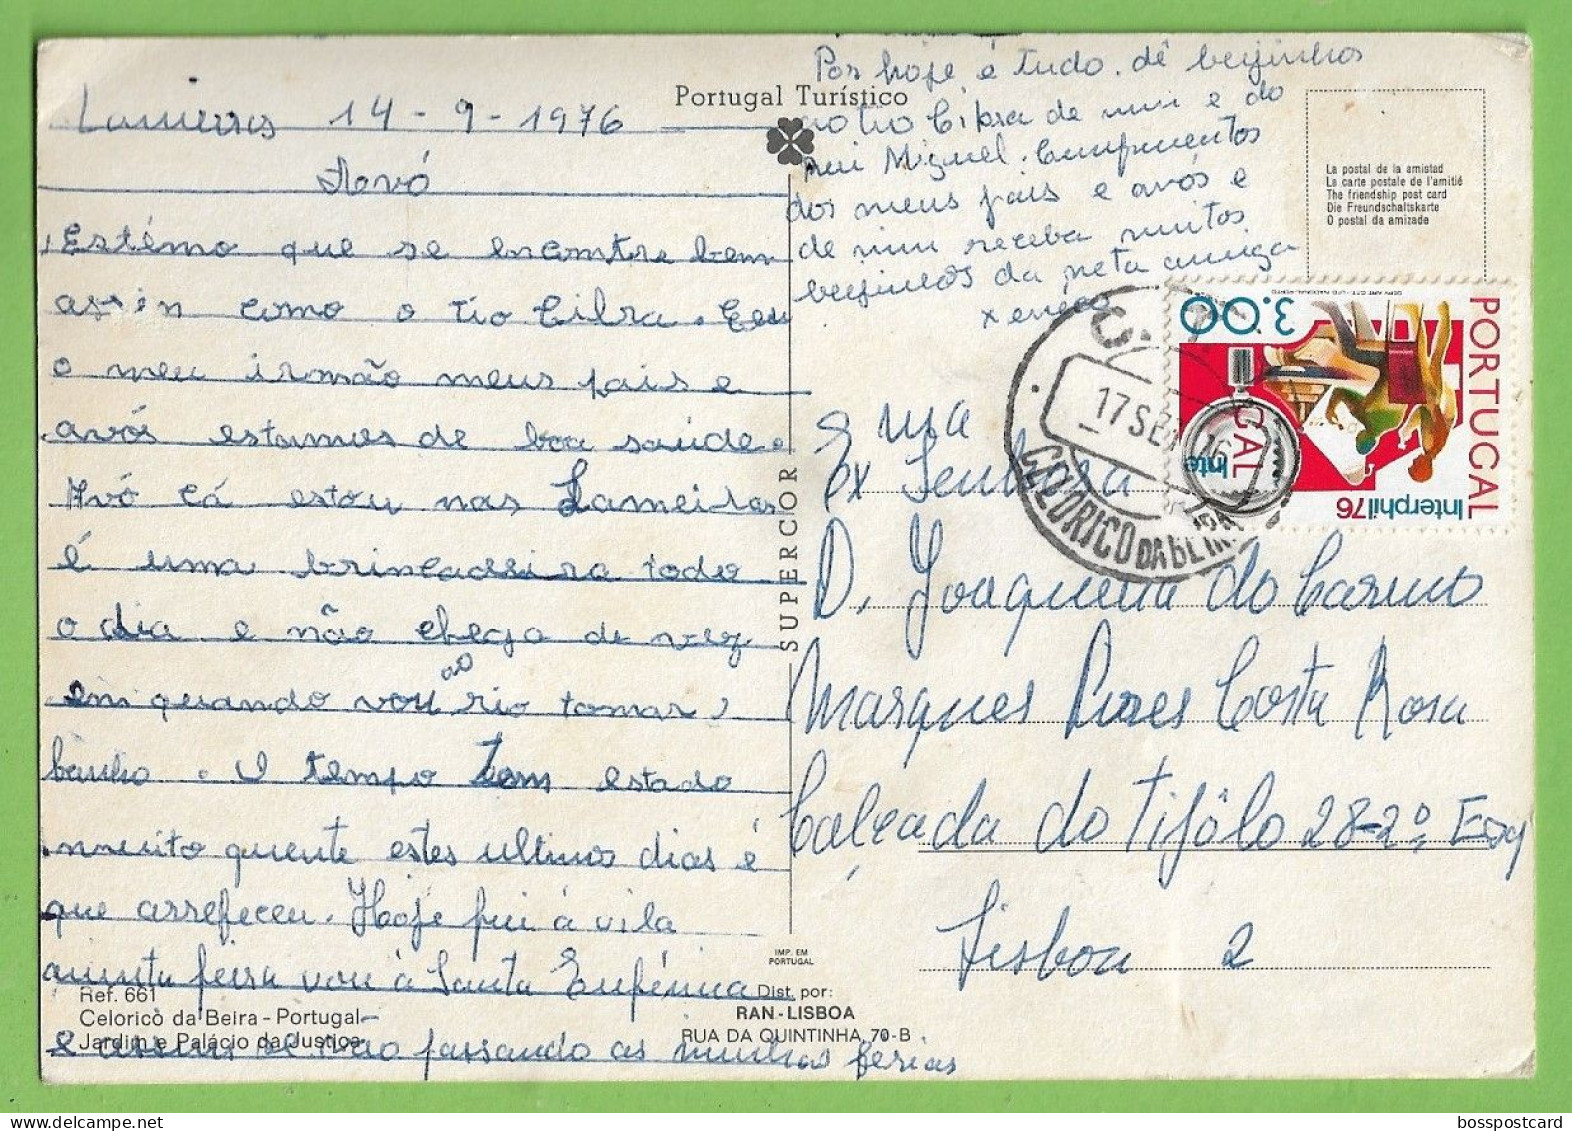 Lameiras 14-9-1976
Avó
Estémo que se encontre bem
assin como o tio Cibra. Eeu
o meu irmão meus pais e
avós estamos de boa saúde.
Avó cá estou nas Lameiras
é uma brincadeira todo
o dia e não chega de vez
em quando vou ao rio tomar
banho. O tempo tem estado
muito quente estes ultimos dias é
que arrefeceu. Hoje fui á vila
quinta feira vou á Santa Eufémia
e assim se vão passando as minhas férias
Portugal Turístico
Por hoje é tudo. dê beijinhos
ao tio Cibra de mim e do
Rui Miguel. Cumprimentos
dos meus pais e avós e
de mim receba muitos
beijinhos da neta amiga
La postal de la amistad
La carte postale de l'amitié
The friendship post card
Die Freundschaftskarte
O postal da amizade
PORTUGAL
3.00
Interphil 76
Inte
CAL
17 SET 76
CELORICO DA BEIRA
SUPERCOR
Ex Senhora
D. Joaquina do Carmo
Marques Pires Costa Rosa
Calçada do Tijôlo 28-2º Esq
Lisboa 2
IMP. EM
PORTUGAL
Ref. 661
Celorico da Beira - Portugal
Jardim e Palácio da Justiça
Dist. por:
RAN - LISBOA
RUA DA QUINTINHA, 70-B
bosspostcard